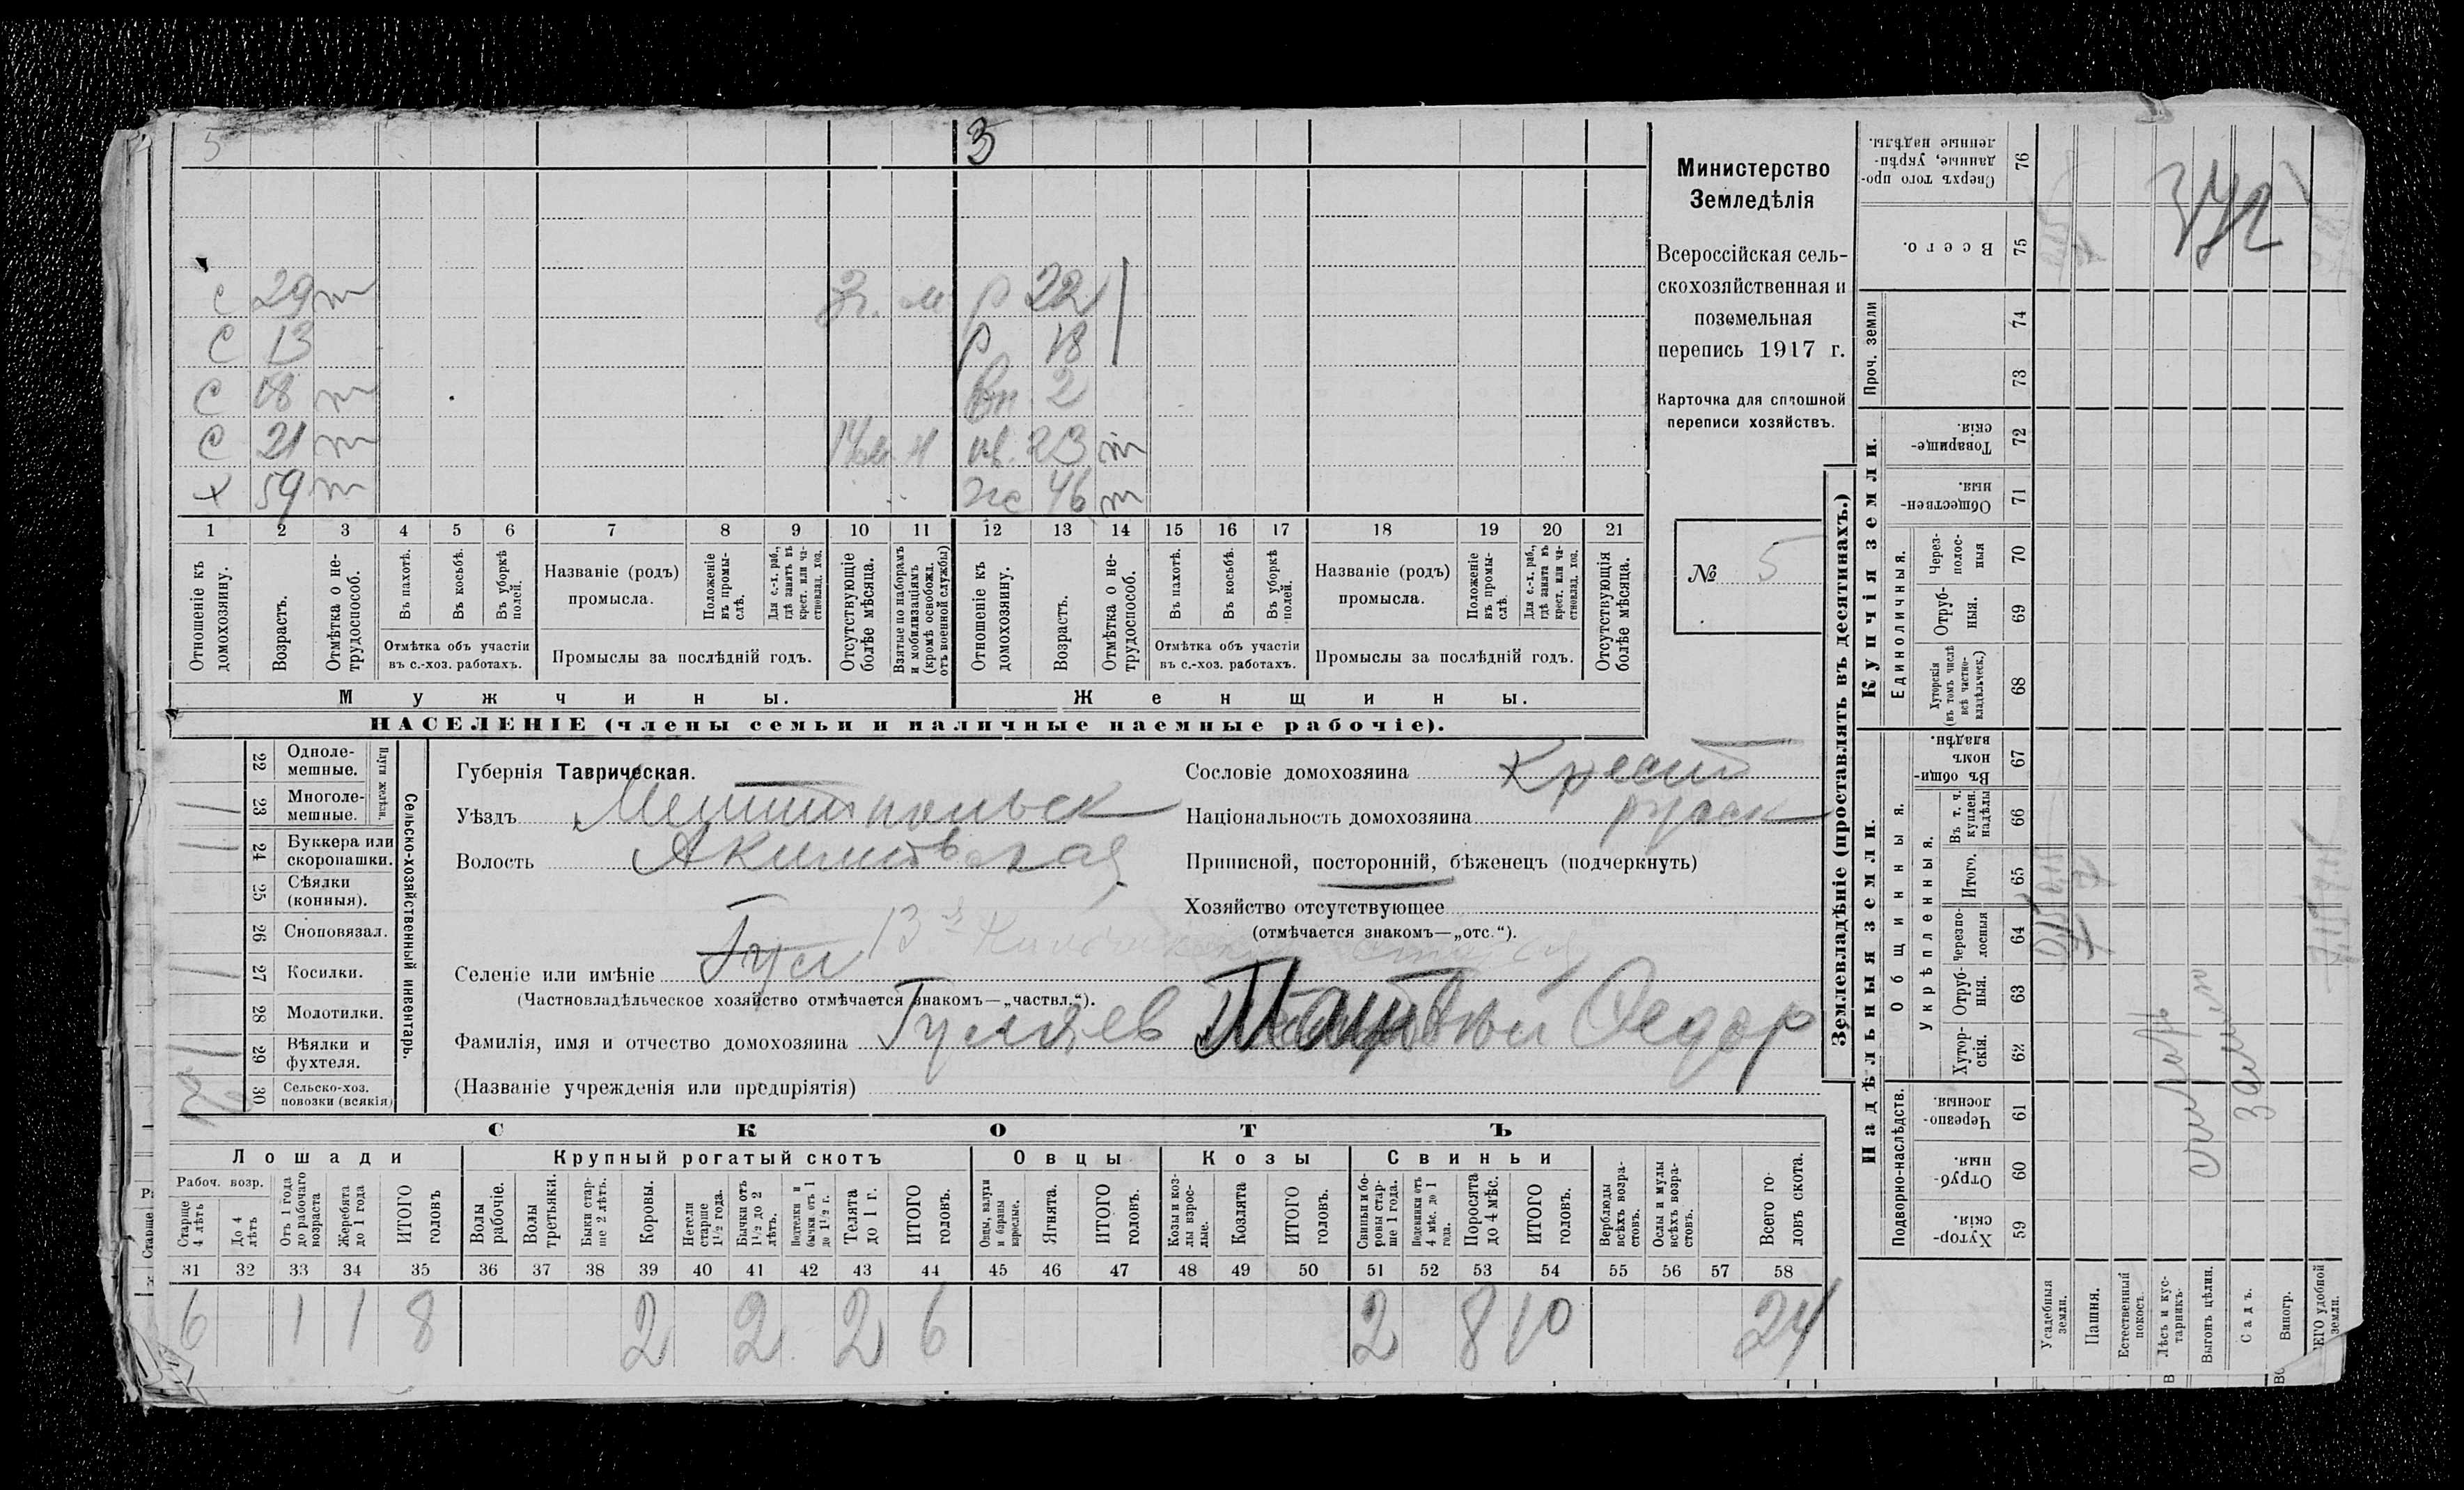 5 3
с 29 т 3 г. м р 22
с 13 р 18
с 18 т вн 2
с 21 т нв. 23 т
х 59 т же 46 т
1 2 3 4 5 6 7 8 9 10 11 12 13 14 15 16 17 18 19 20 21
Отношеніе къ домохозяину.
Возрастъ.
Отмѣтка о не-трудоспособ.
Въ пахотѣ.
Въ косьбѣ.
Въ уборкѣ полей.
Отмѣтка объ участіи въ с.-хоз. работахъ.
Названіе (родъ) промысла.
Положеніе въ промы-слѣ.
Для с.-х. раб., гдѣ занятъ въ крест. или ча-стновлад. хоз.
Промыслы за послѣдній годъ.
Отсутствующіе болѣе мѣсяца.
Взятые по наборамъ и мобилизаціямъ (кромѣ освобожд. отъ военной службы)
Отношеніе къ домохозяину.
Возрастъ.
Отмѣтка о не-трудоспособ.
Въ пахотѣ.
Въ косьбѣ.
Въ уборкѣ полей.
Отмѣтка объ участіи въ с.-хоз. работахъ.
Названіе (родъ) промысла.
Положеніе въ промы-слѣ.
Для с.-х. раб., гдѣ занята въ крест. или ча-стновлад. хоз.
Промыслы за послѣдній годъ.
Отсутствующія болѣе мѣсяца.
Мужчины. Женщины.
НАСЕЛЕНІЕ (члены семьи и наличные наемные рабочіе).
Министерство
Земледѣлія
Всероссійская сель-
скохозяйственная и
поземельная
перепись 1917 г.
Карточка для сплошной
переписи хозяйствъ.
№ 5
22 Одноле-мешные.
23 Многоле-мешные. 1
Плуги желѣзн.
24 Буккера или скоропашки. 1
25 Сѣялки (конныя).
26 Сноповязал.
27 Косилки. 1
28 Молотилки.
29 Вѣялки и фухтеля. 1
30 Сельско-хоз. повозки (всякія)
Сельско-хозяйственный инвентарь.
Губернія Таврическая.
Уѣздъ Мелитопольск
Волость Акимовская
Селеніе или имѣніе Гус 13
(Частновладѣльческое хозяйство отмѣчается знакомъ—„частвл.“).
Фамилія, имя и отчество домохозяина Гуляев Матвѣй Федор
(Названіе учрежденія или предпріятія)
Сословіе домохозяина Крест
Національность домохозяина русск
Приписной, посторонній, бѣженецъ (подчеркнуть)
Хозяйство отсутствующее
(отмѣчается знакомъ—„отс.“).
СКОТЪ
Лошади Крупный рогатый скотъ Овцы Козы Свиньи
Рабоч. возр.
Старше 4 лѣтъ
До 4 лѣтъ
Отъ 1 года до рабочаго возраста
Жеребята до 1 года
ИТОГО головъ
Волы рабочіе.
Волы третьяки.
Быки стар-ше 2 лѣтъ.
Коровы.
Нетели старше 1½ года.
Бычки отъ 1½ до 2 лѣтъ.
Подтелки и бычки отъ 1 до 1½ г.
Телята до 1 г.
ИТОГО головъ.
Овцы, валухи и бараны взрослые.
Ягнята.
ИТОГО головъ.
Козы и коз-лы взрос-лые.
Козлята
ИТОГО головъ.
Свиньи и бо-ровы стар-ше 1 года.
Подсвинки отъ 4 мѣс. до 1 года.
Поросята до 4 мѣс.
ИТОГО головъ.
Верблюды всѣхъ возра-стовъ.
Ослы и мулы всѣхъ возра-стовъ.
Всего го-ловъ скота.
31 32 33 34 35 36 37 38 39 40 41 42 43 44 45 46 47 48 49 50 51 52 53 54 55 56 57 58
6 1 1 8 2 2 2 6 2 8 10 24
Землевладѣніе (проставлять въ десятинахъ.)
Купчія земли.
Надѣльныя земли.
76 Сверхъ того про-данные, укрѣп-ленные надѣлы.
75 Всего.
Проч. земли
74
73
72 Товарище-скія.
71 Обществен-ныя.
Единоличныя.
70 Через-полос-ныя
69 Отруб-ныя.
68 Хуторскія (въ томъ числѣ всѣ частно-владѣльческ.)
67 Въ общи-номъ владѣн.
Общинныя.
Укрѣпленныя.
66 Въ т. ч. куплен. надѣлы
65 Итого.
64 Черезпо-лосныя
63 Отруб-ныя.
62 Хутор-скія.
Подворно-наслѣдств.
61 Черезпо-лосныя.
60 Отруб-ныя.
59 Хутор-скія.
Усадебныя земли.
Пашня.
Естественный покосъ.
Лѣсъ и кус-тарникъ.
Выгонъ цѣлин.
Садъ.
Виногр.
ЕГО удобной земли.
372